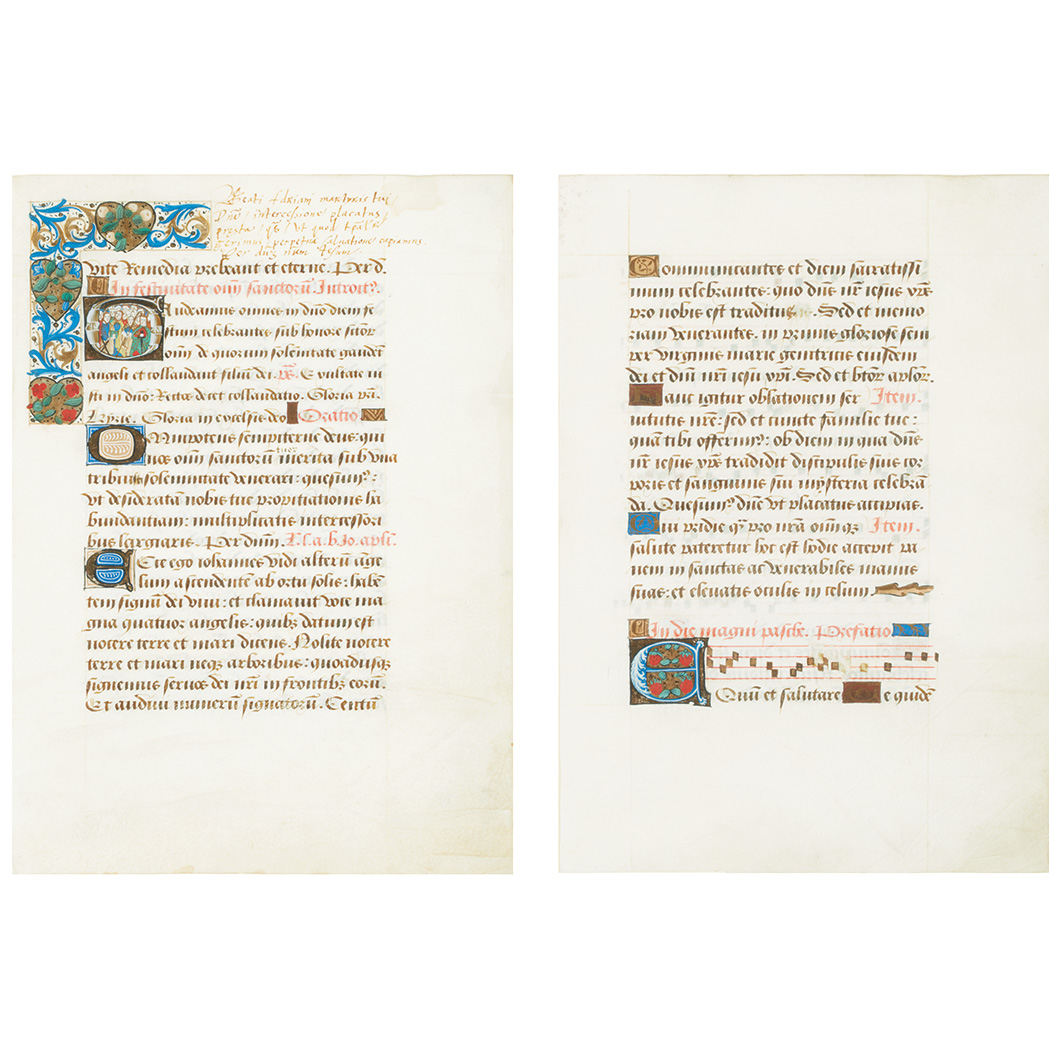 Beati Adriani martyris tui
Dne intercessione placatus
presta qs ut quod tpali
perpetua saluatione capiamus.
Per dnm nrm Ihesum
vite remedia prebeant et eterne. Per d.
In festiuitate oim sanctorū. Introit⁹.
Gaudeamus omnes in dn̄o diem fe
stum celebrantes sub honore sāctor
omī de quorum solemnitate gaudēt
angeli et collaudant filiū dei. ps. Exultate iu
sti in dn̄o: Rectos decet collaudatio. Gloria pr̄i.
kyrie. Gloria in excelsis deo Oratio.
Omnipotens sempiterne deus: qui
nos oīm sanctorū tuor merita sub vna
tribuisti solemnitate venerari: quesum⁹:
vt desideratā nobis tue propitiationis ha
bundantiam: multiplicatis intercessori
bus largiaris. Per dn̄m. L. l. a. b. Io. apli.
Ecce ego iohannes vidi alterū ange
lum ascendentē ab ortu solis: habē
tem signū dei viui: et clamauit voce ma
gna quatuor angelis: quib⁹ datum est
nocere terre et mari dicens. Nolite nocere
terre et mari neqz arboribus: quoadusqz
signemus seruos dei nr̄i in frontibz eorū.
Et audiui numerū signatorū. Centū
Communicantes et diem sacratissi
mum celebrantes: quo dn̄s nr̄ iesus xp̄s
pro nobis est traditus. Sed et memo
riam venerantes. in primis gloriose sem
per virginis marie genitricis eiusdem
dei et dn̄i nr̄i iesu xp̄i. Sed et btōr aplor.
Hanc igitur oblationem ser Item.
uitutis nr̄e: sed et cuncte familie tue:
quā tibi offerim⁹: ob diem in qua dn̄s
nr̄ iesus xp̄s tradidit discipulis suis cor
poris et sanguinis sui mysteria celebrā
da. Quesum⁹ dn̄e vt placatus accipias.
Qui pridie q̄ pro nr̄a oīm qz Item.
salute pateretur hoc est hodie accepit pa
nem in sanctas ac venerabiles manus
suas: et eleuatis oculis in celum
In die magni pasche. Prefatio.
Equū et salutare Te quidē